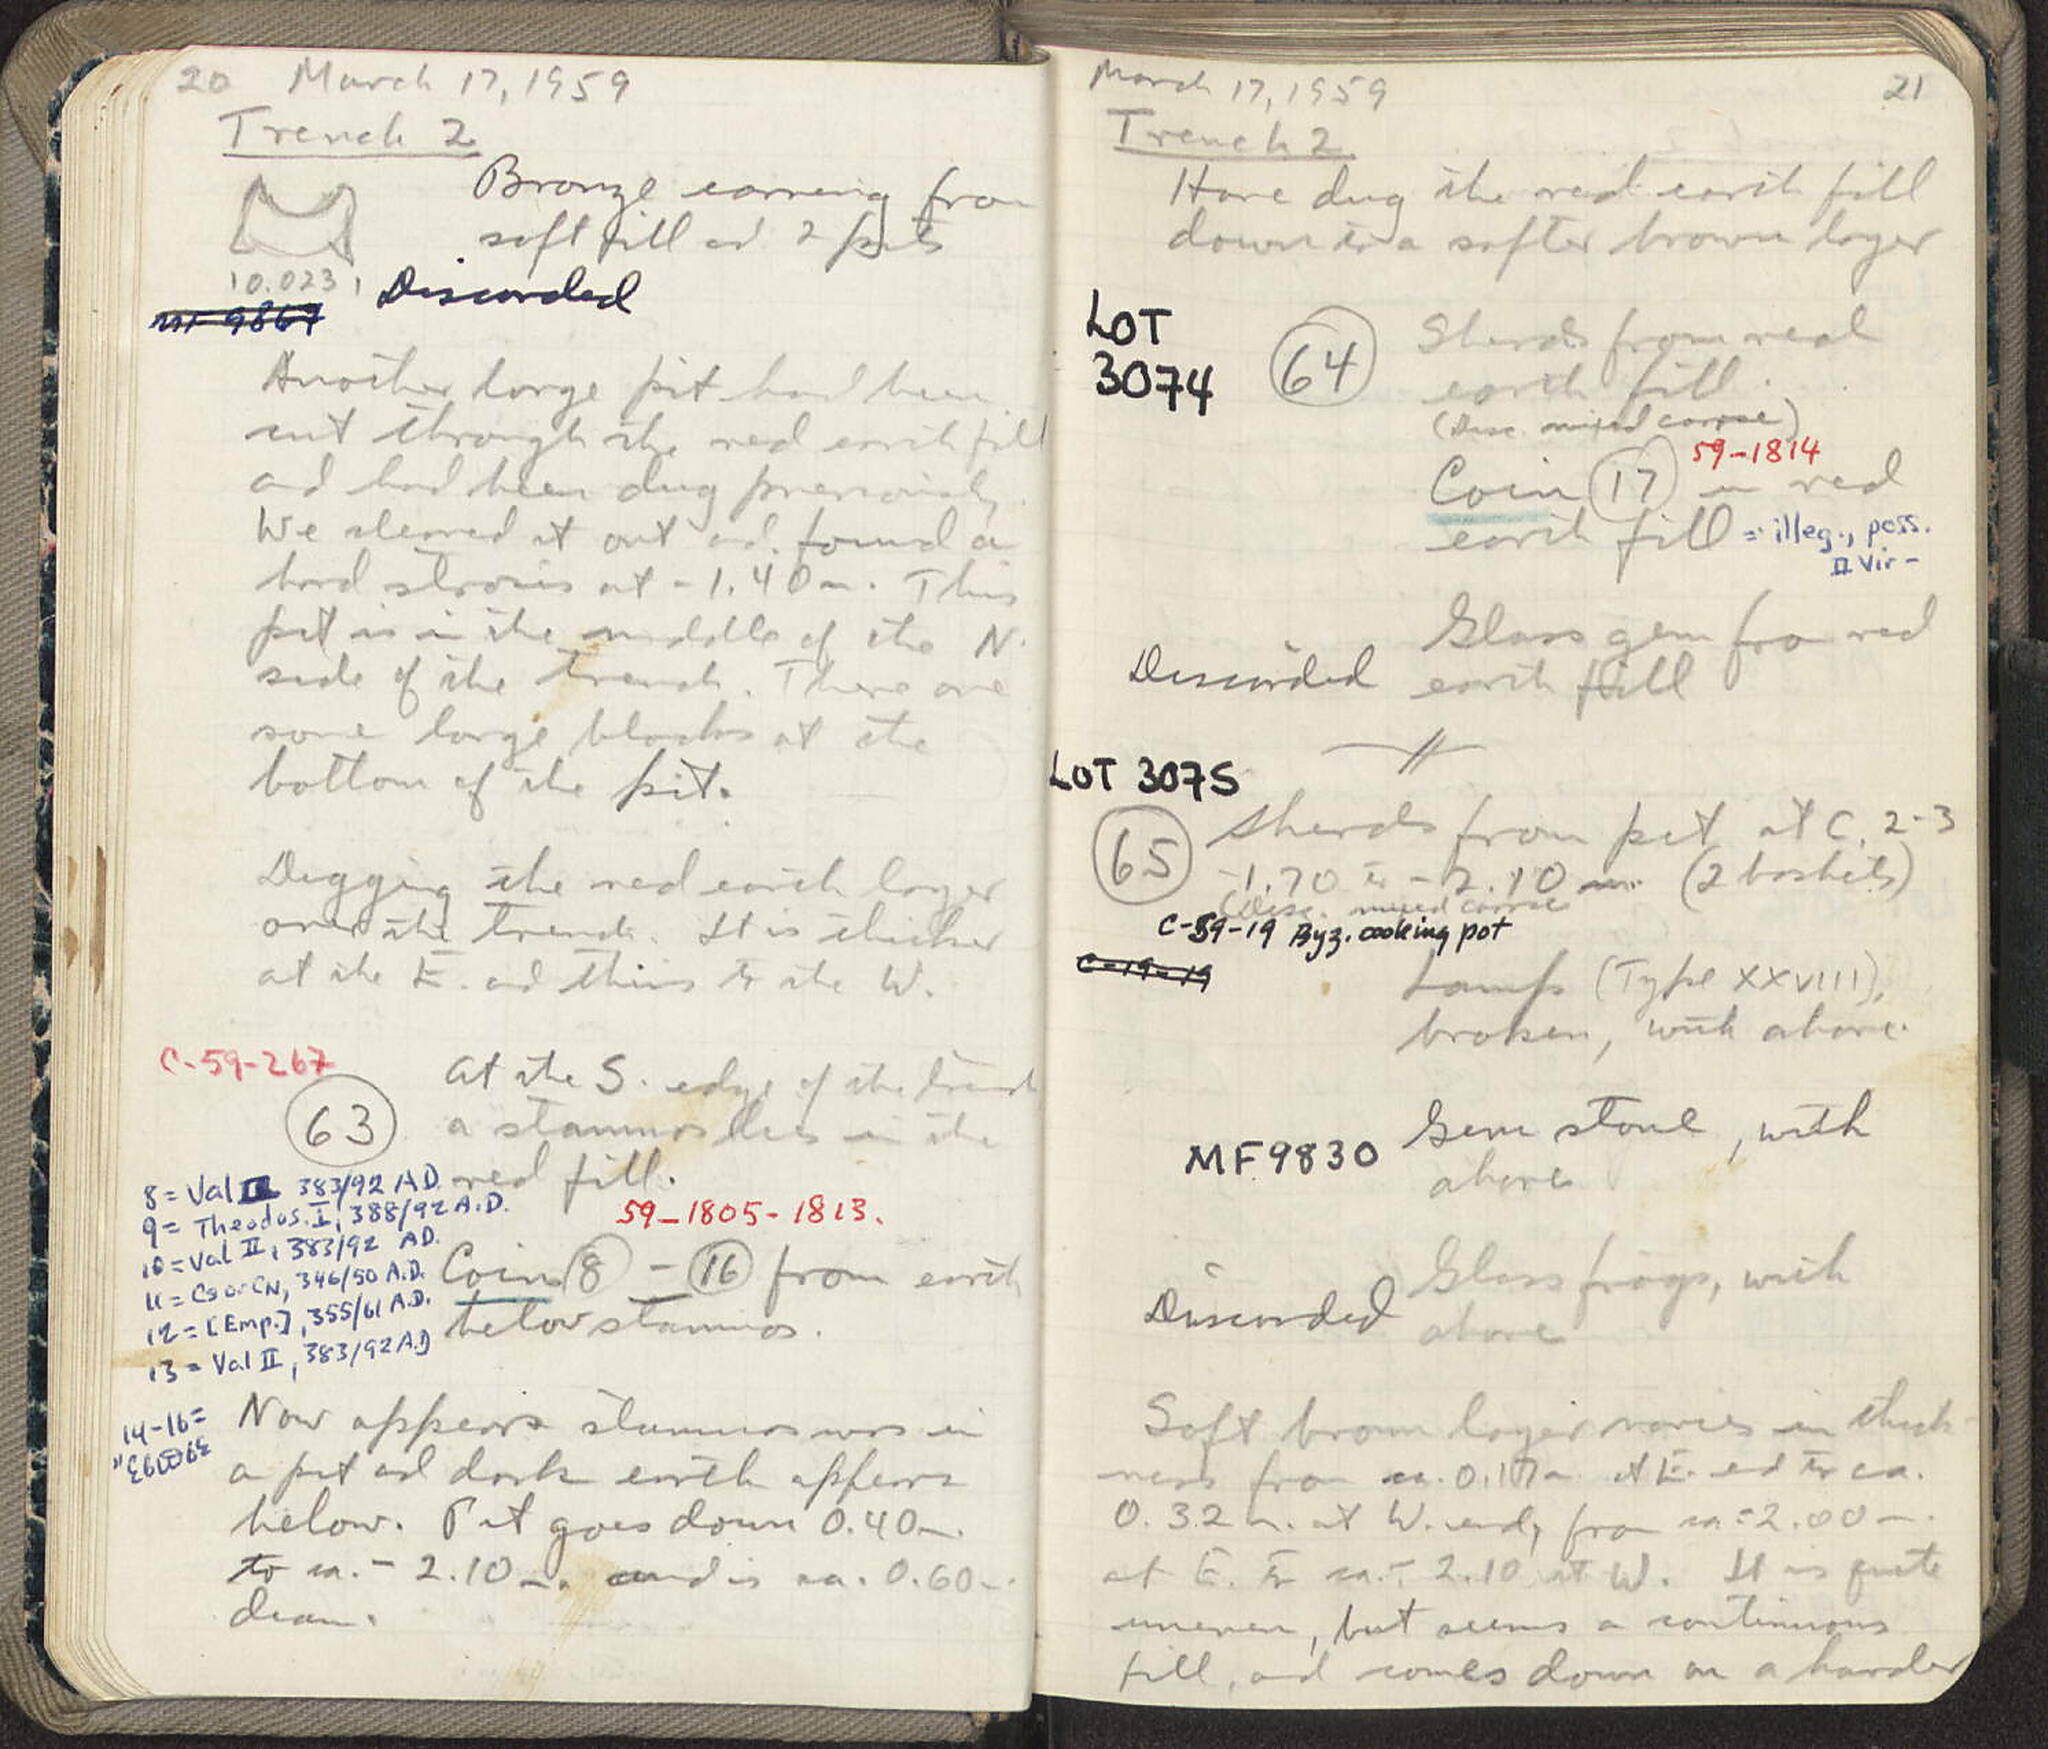 20 March 17, 1959
Trench 2
Bronze earring from
soft fill and 2 pots
10.0231
MF 9867
Discarded
Another large pit had been
cut through the red earth fill
and had been dug previously.
We cleared it out and found a
hard strosis at -1.40m. This
pit is in the middle of the N.
side of the trench. There are
some large blocks at the
bottom of the pit.
Digging the red earth layer
over the trench. It is thicker
at the E. and thins to the W.
C-59-267
63
At the S. edge of the trench
a stamnos lies in the
red fill.
8 = Val II 383/92 A.D.
9 = Theodos. I, 388/92 A.D.
10 = Val II, 383/92 AD.
11 = Cs or CN, 346/50 A.D.
12 = [Emp.], 355/61 A.D.
13 = Val II, 383/92 A.D
14-16 =
59-1805-1813.
Coins 8 - 16 from earth
below stamnos.
Now appears stamnos was in
a pit and dark earth appears
below. Pit goes down 0.40m.
to ca. - 2.10m. and is ca. 0.60m.
diam.
March 17, 1959 21
Trench 2
Have dug the red earth fill
down to a softer brown layer
LOT
3074
64
Sherds from red
earth fill.
(Disc. mixed coarse)
59-1814
Coin 17 in red
earth fill = illeg., poss.
II Vir-
Glass gem from red
Discarded earth fill
LOT 3075
65 Sherds from pit at C, 2-3
-1.70 to -2.10 m. (2 baskets)
(Disc. mixed coarse
C-59-19 Byz. cooking pot
C-19-19
Lamps (Type XXVIII),
broken, with above.
MF9830 Gem stone, with
above
Glass frags, with
Discarded above
Soft brown layer varies in thick-
ness from ca. 0.10m at E. end to ca.
0.32 m. at W. end, from ca. -2.00m.
at E. to ca. - 2.10 at W. It is quite
uneven, but seems a continuous
fill, and comes down on a harder